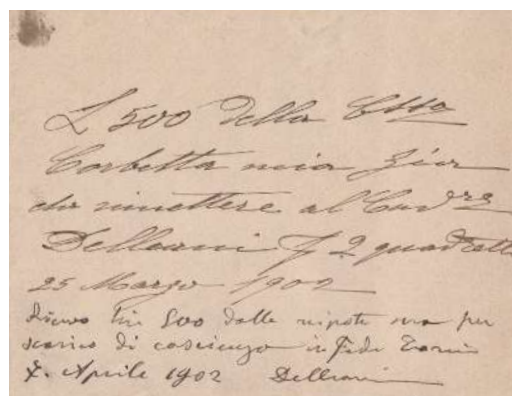 L 500 della C.ssa
Corbetta mia Zia
da rimettere al Cav.re
Delleani p 2 quadretti
25 Marzo 1902
Ricevo lire 500 dalla nipote ma per
scarico di coscienza in fede Torino
7. Aprile 1902 Delleani